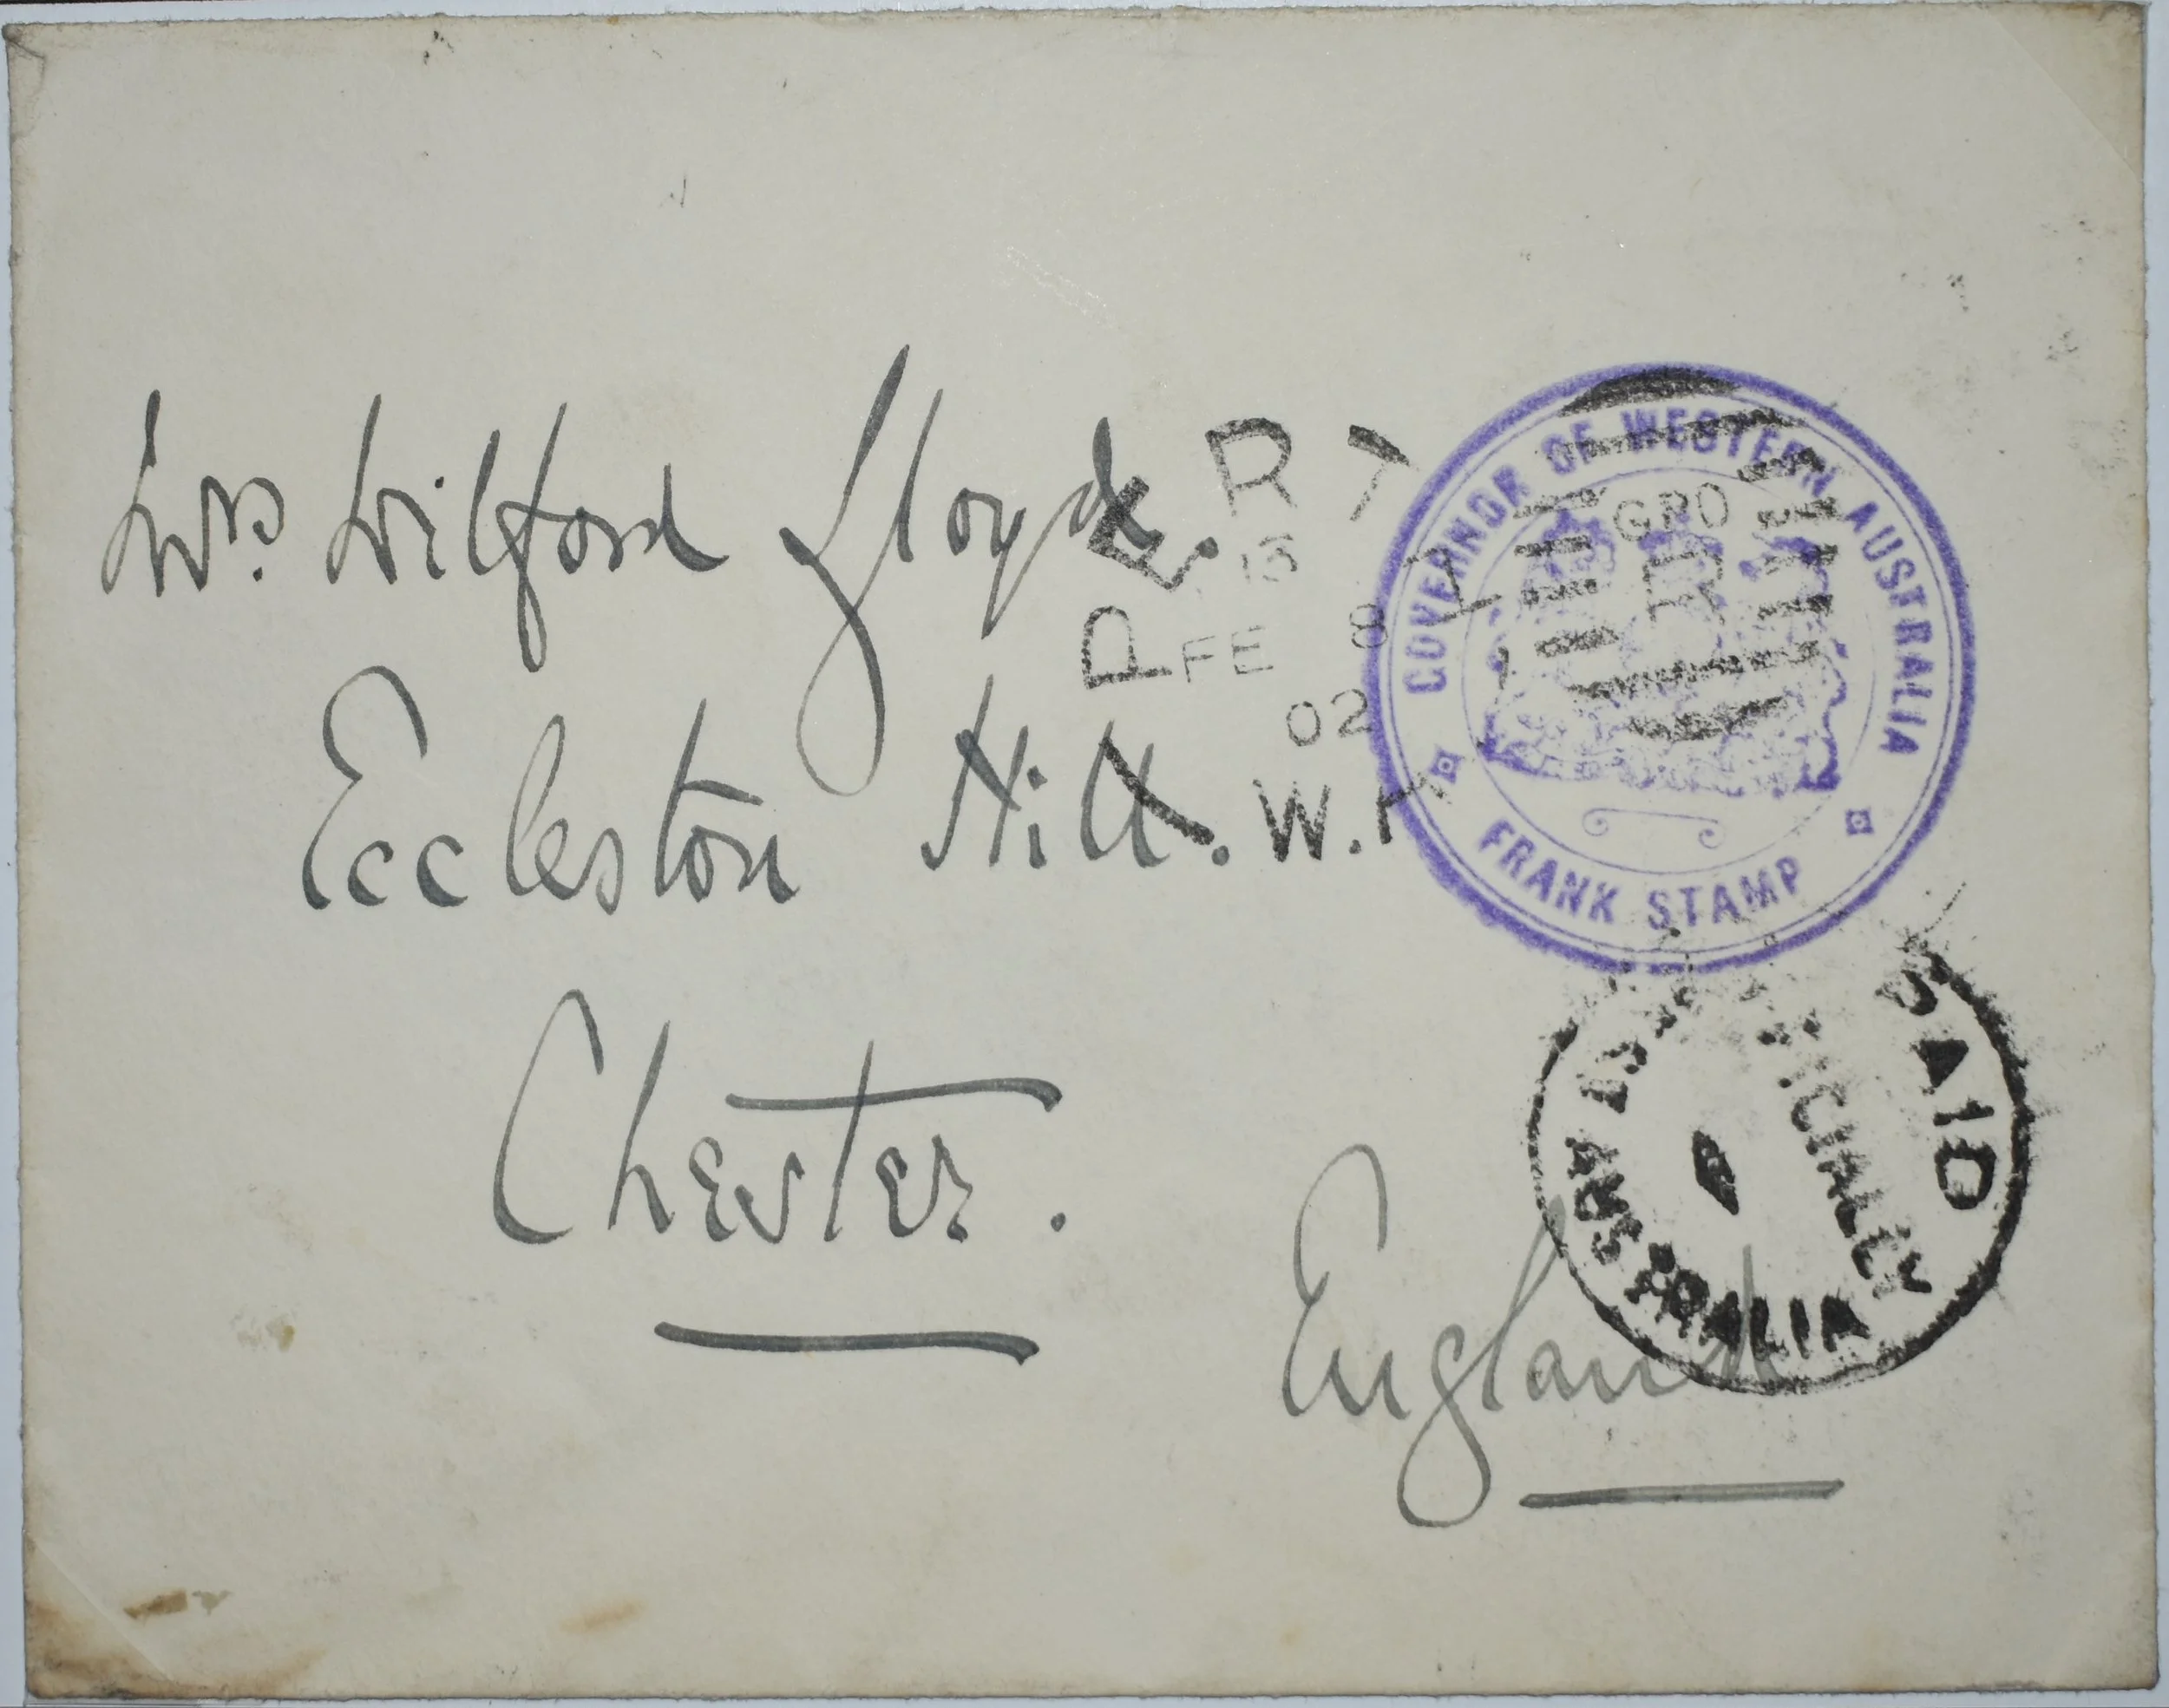 Mrs. Wilford Lloyd.
Eccleston Hill.
Chester.
England
PERTH
13
FE 8
02
W.A
GPO
R
1
GOVERNOR OF WESTERN AUSTRALIA
FRANK STAMP
PAID
OFFICIALLY
AUSTRALIA